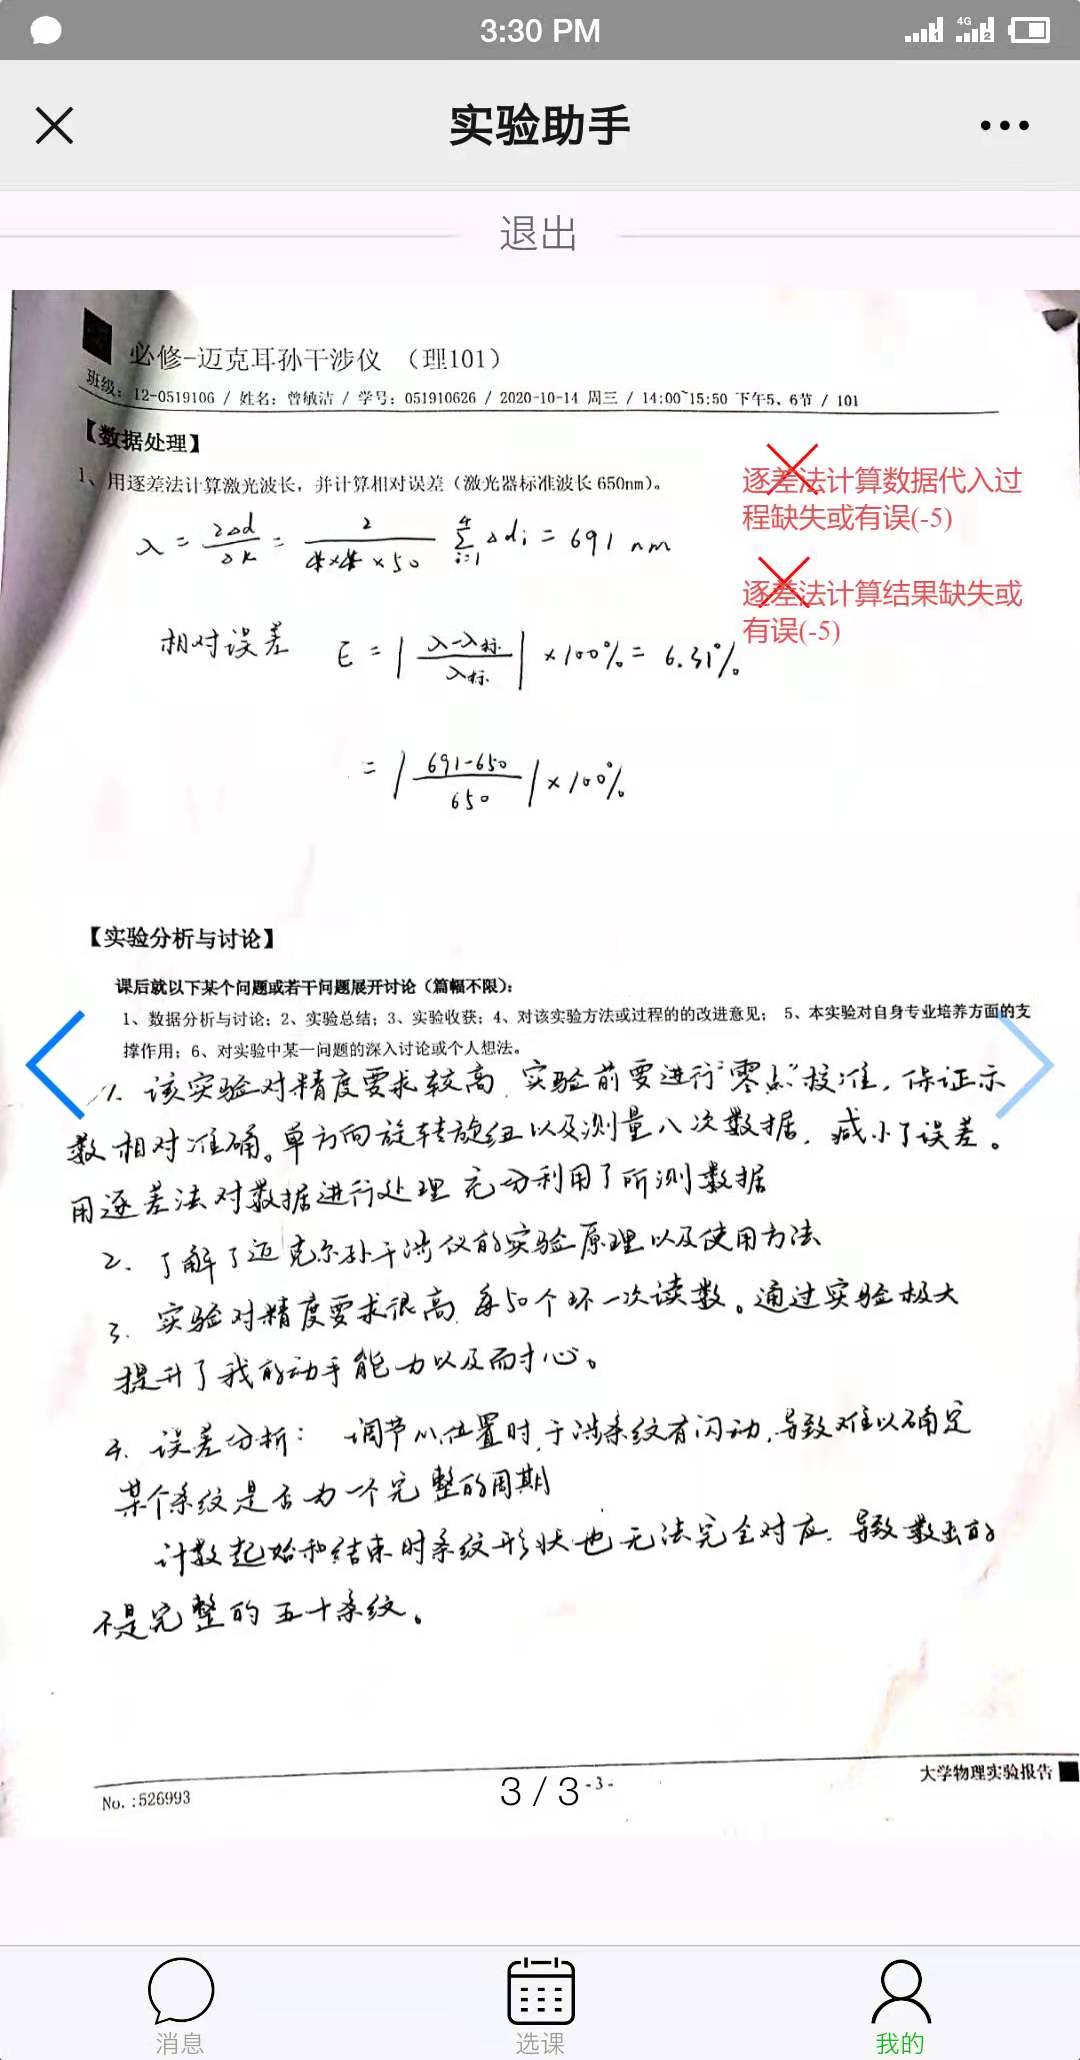 3:30 PM
4G
1
2
实验助手
退出
必修-迈克耳孙干涉仪 （理101）
班级：I2-0519106 / 姓名：曾敏洁 / 学号：051910626 / 2020-10-14 周三 / 14:00~15:50 下午5、6节 / 101
【数据处理】
1、用逐差法计算激光波长，并计算相对误差（激光器标准波长 650nm）。
逐差法计算数据代入过
程缺失或有误(-5)
λ = 2Δd/Δk = 2/(4×4×50) Σ_{i=1}^{4} Δdi = 691 nm
逐差法计算结果缺失或
有误(-5)
相对误差 E = |(λ-λ标)/λ标| ×100% = 6.31%
= |(691-650)/650| ×100%
【实验分析与讨论】
课后就以下某个问题或若干问题展开讨论（篇幅不限）：
1、数据分析与讨论；2、实验总结；3、实验收获；4、对该实验方法或过程的的改进意见； 5、本实验对自身专业培养方面的支
撑作用；6、对实验中某一问题的深入讨论或个人想法。
1. 该实验对精度要求较高，实验前要进行“零点”校准，保证示
数相对准确。单方向旋转旋钮以及测量八次数据，减小了误差。
用逐差法对数据进行处理 充分利用了所测数据
2. 了解了迈克尔孙干涉仪的实验原理以及使用方法
3. 实验对精度要求很高，每50个环一次读数。通过实验极大
提升了我的动手能力以及耐心。
4. 误差分析： 调节M位置时，干涉条纹有闪动，导致难以确定
某个条纹是否为一个完整的周期
计数起始和结束时条纹形状也无法完全对应，导致数出的
不是完整的五十条纹。
大学物理实验报告
No.:526993
3 / 3
-3-
消息
选课
我的